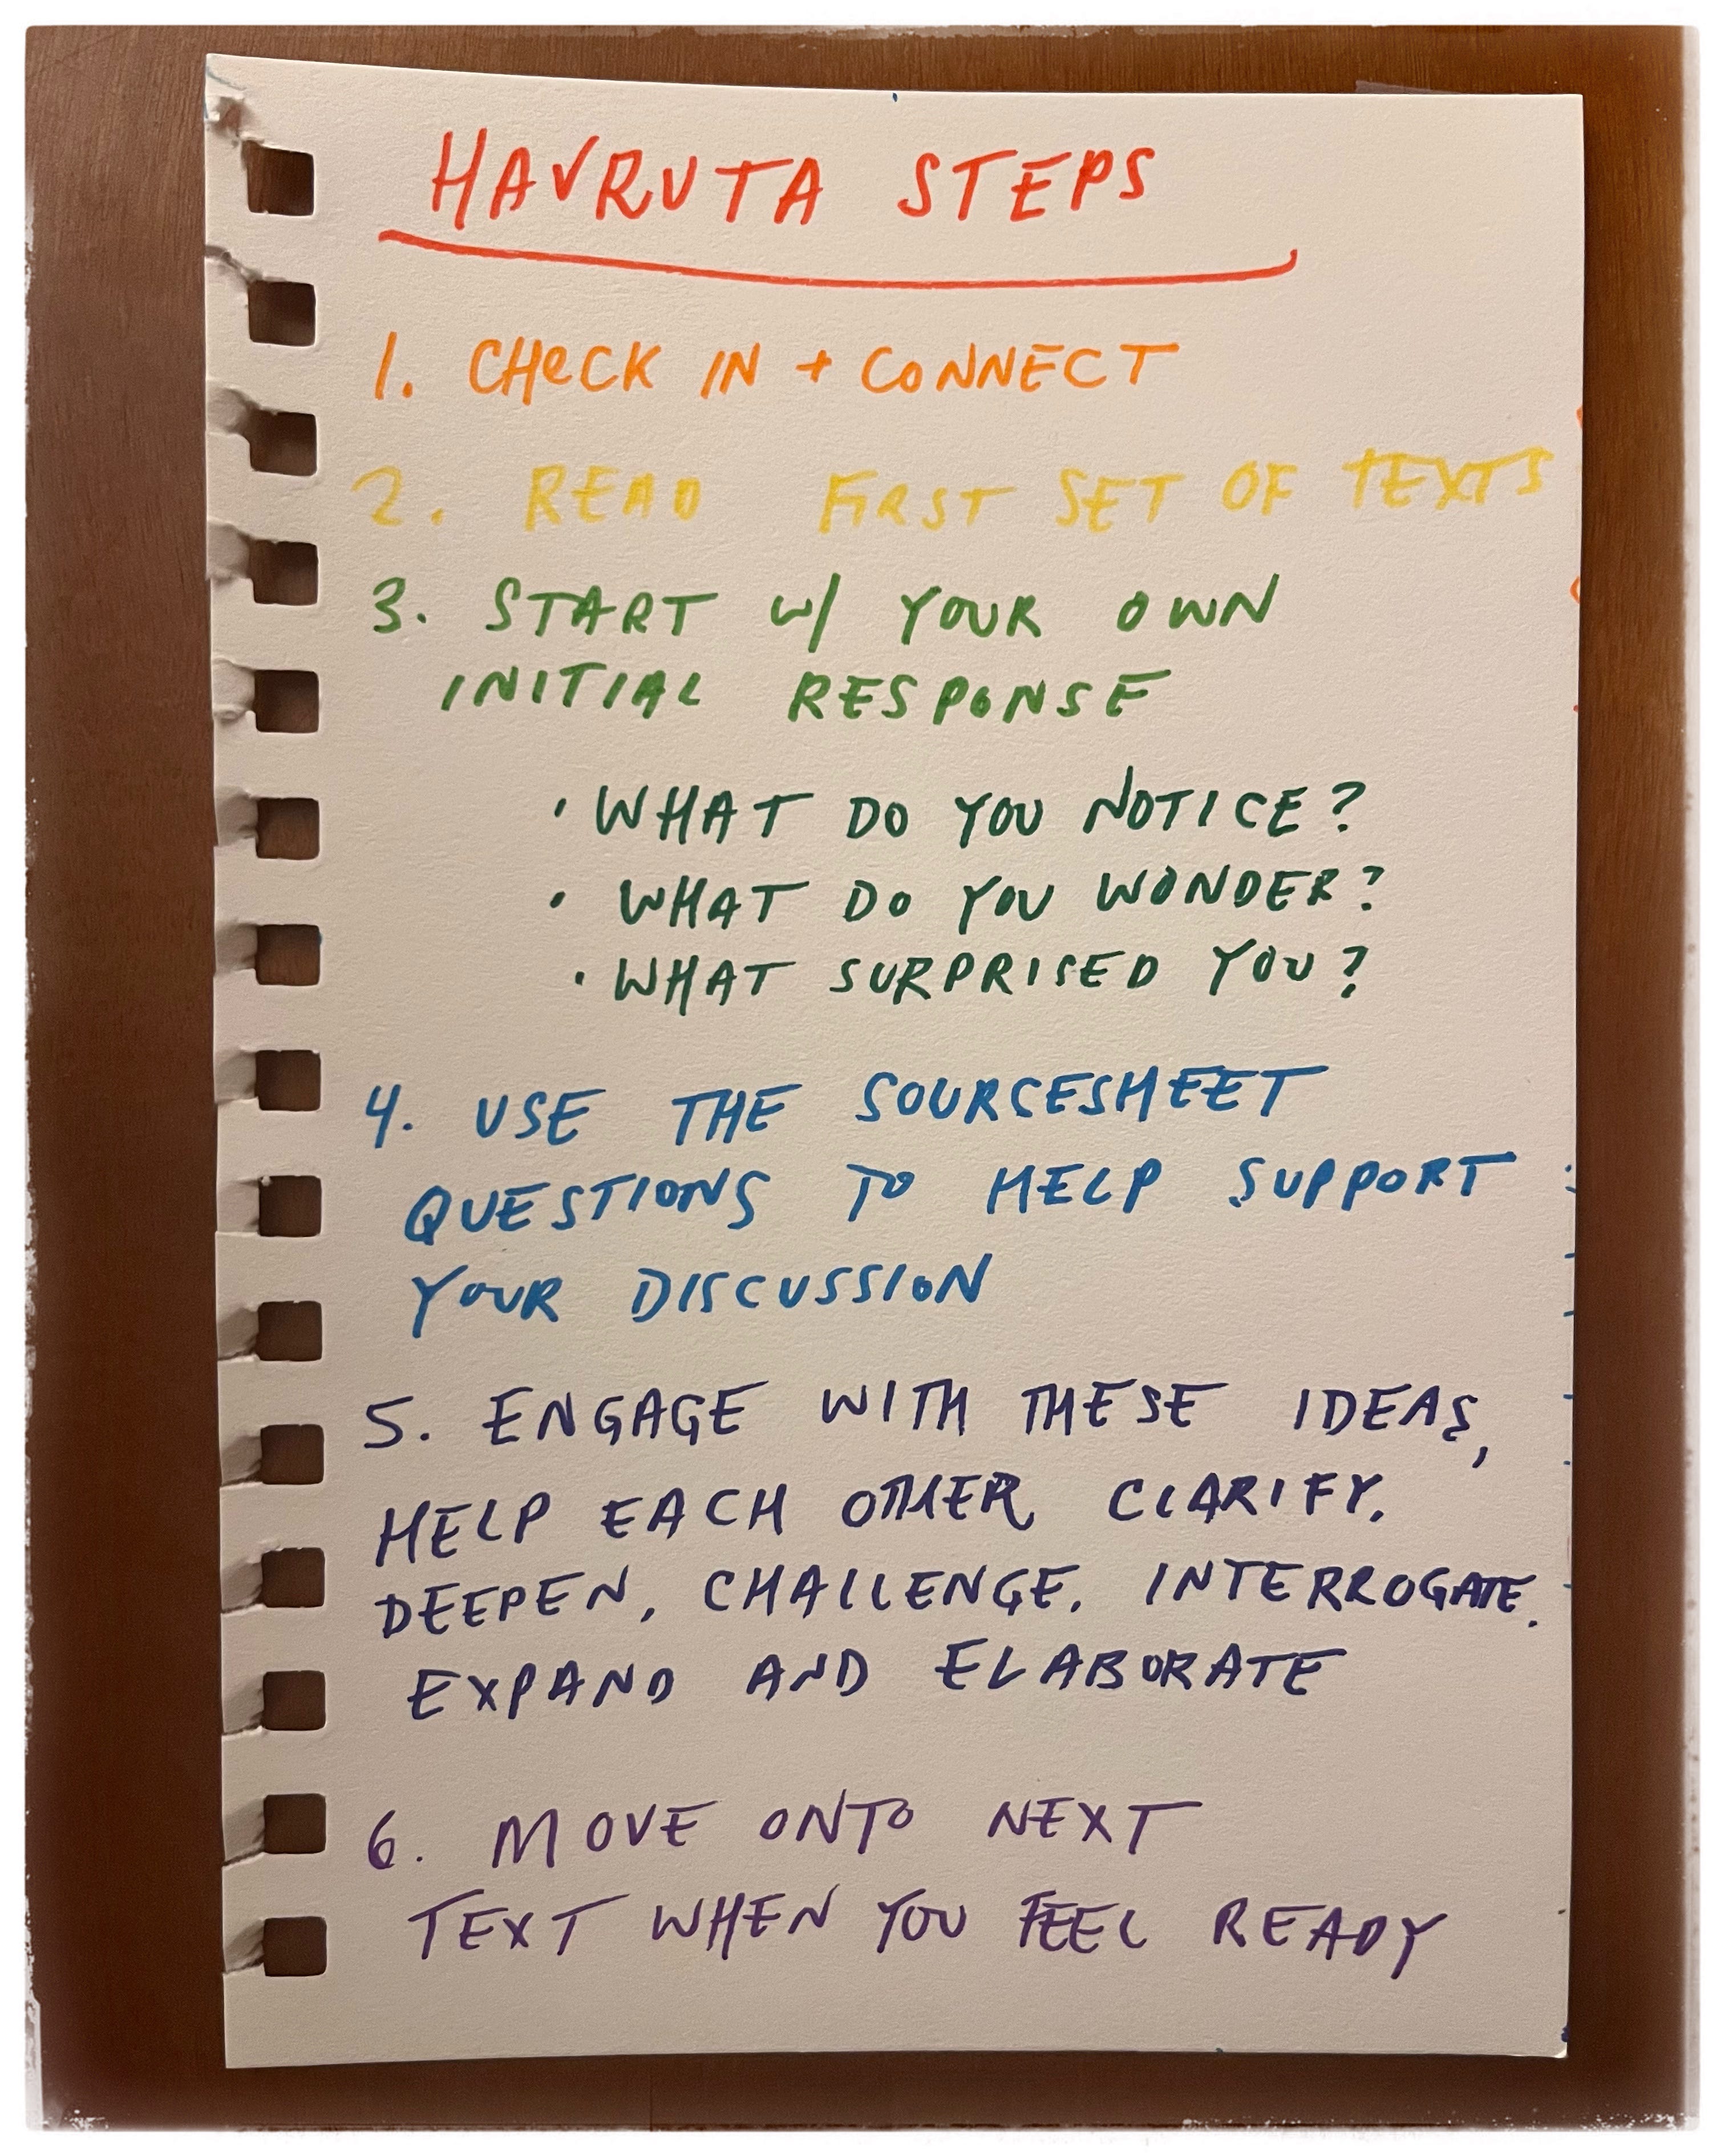 HAVRUTA STEPS
1. CHECK IN + CONNECT
2. READ FIRST SET OF TEXTS
3. START W/ YOUR OWN
INITIAL RESPONSE
· WHAT DO YOU NOTICE?
· WHAT DO YOU WONDER?
· WHAT SURPRISED YOU?
4. USE THE SOURCESHEET
QUESTIONS TO HELP SUPPORT
YOUR DISCUSSION
5. ENGAGE WITH THESE IDEAS,
HELP EACH OTHER CLARIFY,
DEEPEN, CHALLENGE, INTERROGATE,
EXPAND AND ELABORATE
6. MOVE ONTO NEXT
TEXT WHEN YOU FEEL READY